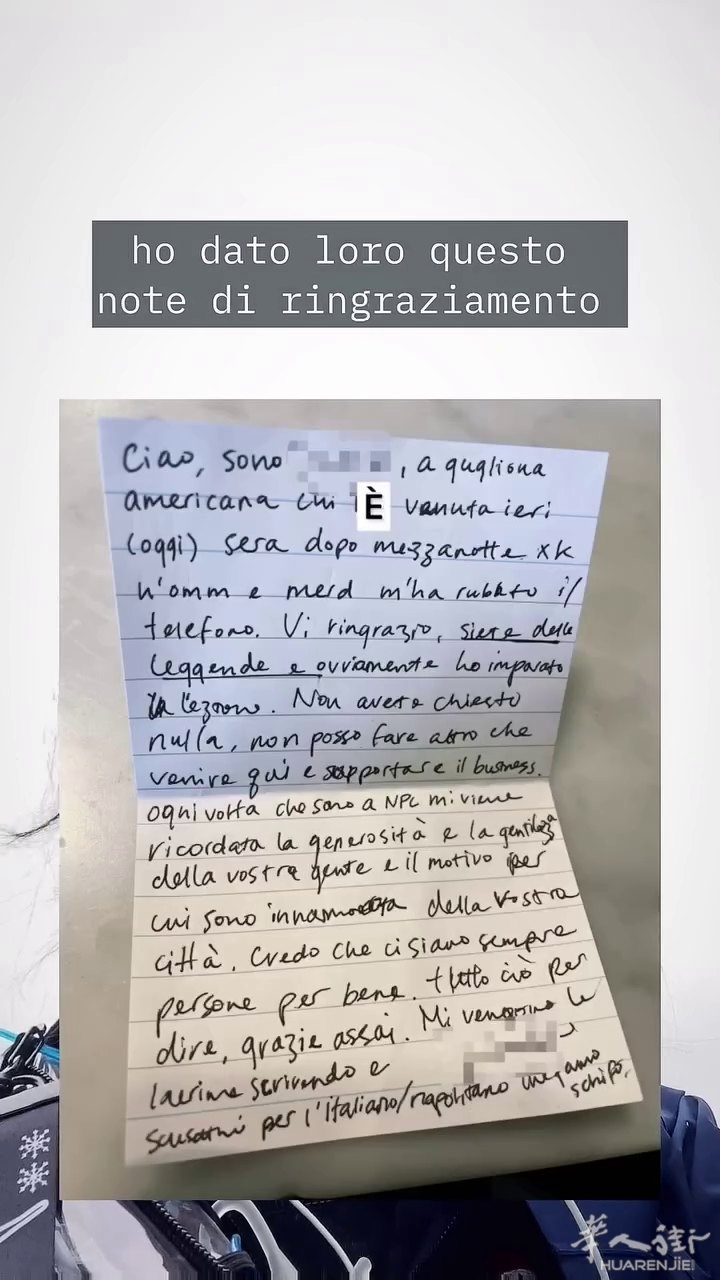 ho dato loro questo
note di ringraziamento
Ciao, sono , a qugliona
americana cui È venuta ieri
(oggi) sera dopo mezzanotte xk
n'omm e merd m'ha rubato il
telefono. Vi ringrazio, siete delle
leggende e ovviamente ho imparato
la lezione. Non avete chiesto
nulla, non posso fare altro che
venire qui e supportare il business.
ogni volta che sono a NPL mi viene
ricordata la generosità e la gentilezza
della vostra gente e il motivo per
cui sono innamorata della vostra
città. Credo che ci siano sempre
persone per bene. tutto ciò per
dire, grazie assai. Mi vengono le
lacrime scrivendo e
scusatemi per l'italiano/napoletano schifo.
华人街
HUARENJIE